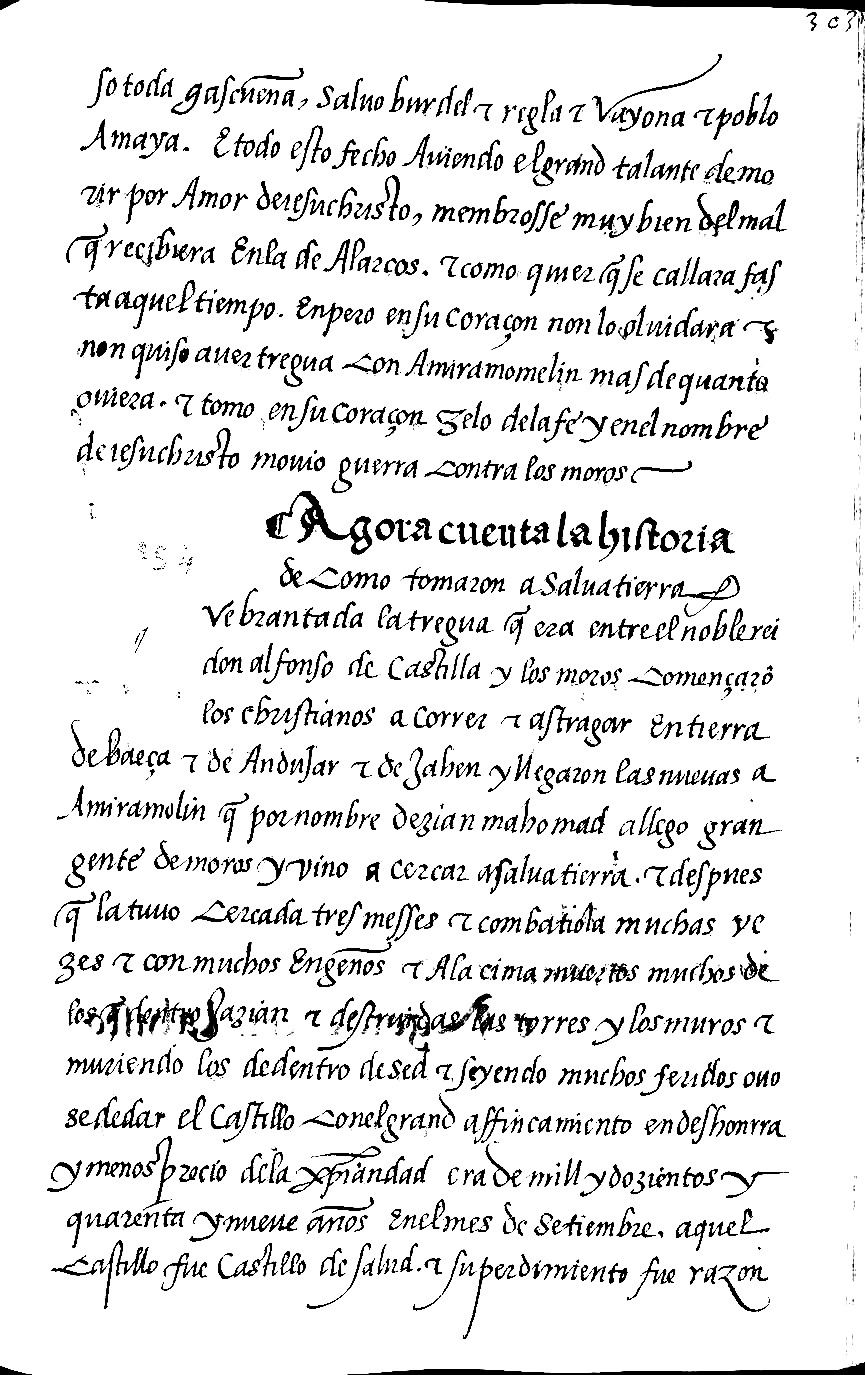 303
so toda gascueña, Saluo burdel τ regla τ Vayona τ poblo
Amaya. E todo esto fecho Auiendo el grand talante de mo
rir por Amor de iesuchristo, membrosse muy bien del mal
q̃ recibiera En la de Alarcos. τ como quier q̃ se callara fas
ta aquel tiempo. Enpero en su coraçon non lo oluidara τ
non quiso auer tregua con Amiramomelin mas de quanto
ouiera. τ tomo en su coraçon zelo de la fe y en el nombre
de iesuchristo mouio guerra contra los moros
Agora cuenta la historia
de como tomaron a Saluatierra
Vebrantada la tregua q̃ era entre el noble rei
don alfonso de Castilla y los moros començarõ
los christianos a correr τ astragar En tierra
de baeça τ de Andujar τ de Jahen y llegaron las nueuas a
Amiramolin q̃ por nombre dezian mahomad allego gran
gente de moros y vino a cercar a saluatierra. τ despues
q̃ la tuuo cercada tres messes τ combatiola muchas ve
zes τ con muchos Engeños τ A la cima muertos muchos de
los q̃ dentro τ destruidas las torres y los muros τ
muriendo los de dentro de sed τ seyendo muchos feridos ouo
se de dar el Castillo con el grand affincamiento en deshonrra
y menos precio de la xp̃iandad era de mill y dozientos y
quarenta y nueue años En el mes de Setiembre. aquel
Castillo fue Castillo de salud. τ su perdimiento fue razon